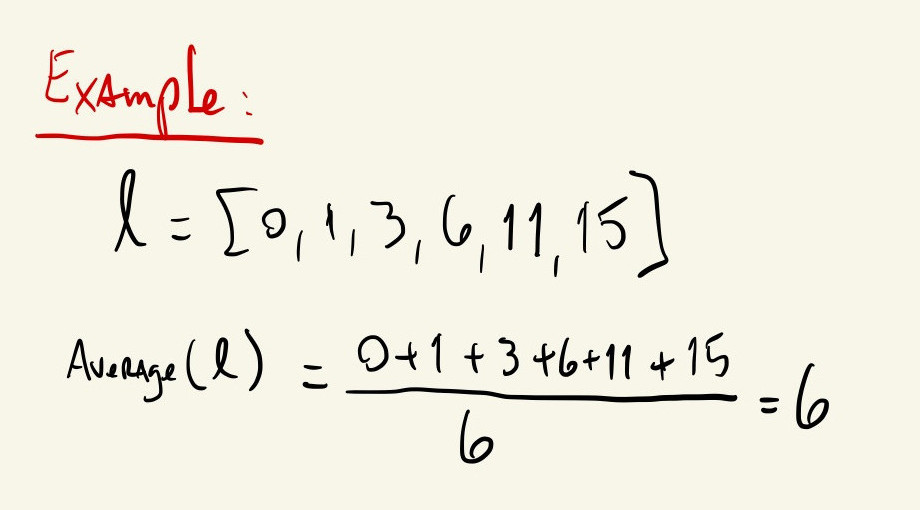 Example:
l = [0, 1, 3, 6, 11, 15]
Average(l) = \frac{0+1+3+6+11+15}{6} = 6